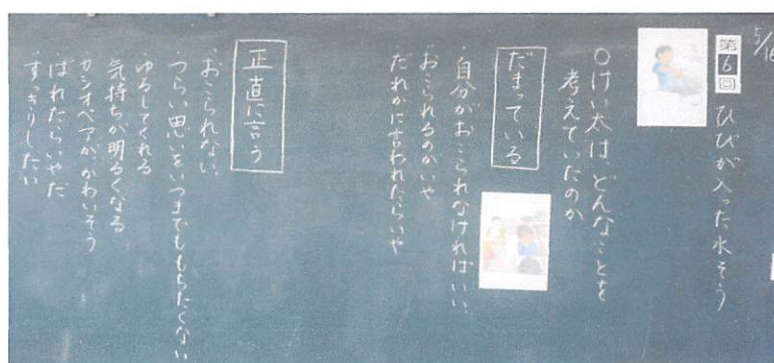 5/16
第6回 ひびが入った水そう
○けい太は、どんなことを
考えていたのか
だまっている
・自分がおこられなければいい
・おこられるのがいや
・だれかに言われたらいや
正直に言う
・おこられない
・つらい思いをいつまでももちたくない
・ゆるしてくれる
・気持ちが明るくなる
・カシオペアが、かわいそう
・ばれたらいやだ
・すっきりしたい